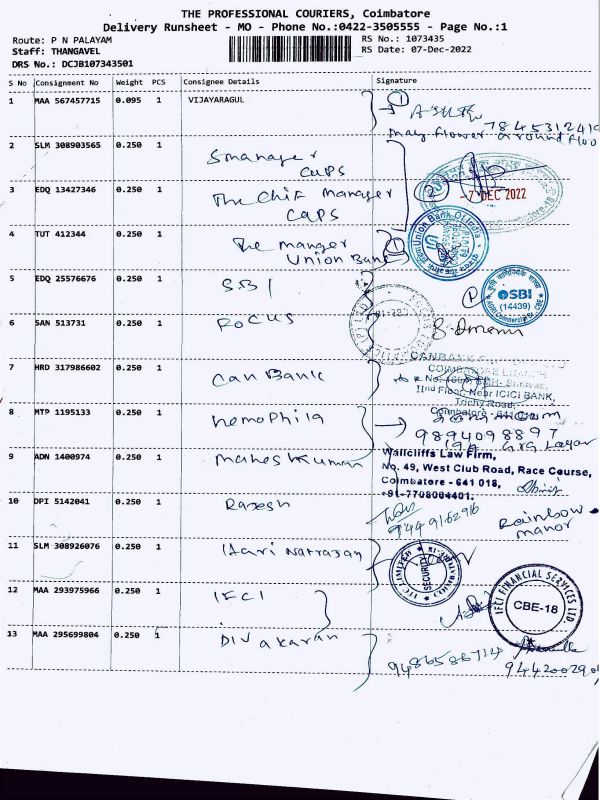 THE PROFESSIONAL COURIERS, Coimbatore
Delivery Runsheet - MO - Phone No.:0422-3505555 - Page No.:1
Route: P N PALAYAM RS No.: 1073435
Staff: THANGAVEL RS Date: 07-Dec-2022
DRS No.: DCJB107343501
S No Consignment No Weight PCS Consignee Details Signature
1 MAA 567457715 0.095 1 VIJAYARAGUL
1
May flower Ground Floo
2 SLM 308903565 0.250 1 Smanager
CUPS
3 EDQ 13427346 0.250 1 The Chif Manager
CaPS
2
-7 DEC 2022
4 TUT 412344 0.250 1 The manger
Union Bank
Union Bank Of India
5 EDQ 25576676 0.250 1 SBI
SBI
(14439)
6 SAN 513731 0.250 1 Rocus
7 HRD 317986602 0.250 1 Can Bank
IInd Floor, Near ICICI BANK,
Trichy Road,
Coimbatore - 641
8 MTP 1195133 0.250 1 hemophila
9894098897
9 ADN 1400974 0.250 1 Maheskumar
Wallcliffs Law Firm,
No. 49, West Club Road, Race Course,
Coimbatore - 641 018,
+91-7708004401.
10 DPI 5142041 0.250 1 Rajesh
Rainbow
manor
11 SLM 308926076 0.250 1 Hari Natrajan
ITC LIMITED
SECURITY
12 MAA 293975966 0.250 1 IFCI
IFCI FINANCIAL SERVICES LTD.
CBE-18
13 MAA 295699804 0.250 1 Divakaran
9486586714